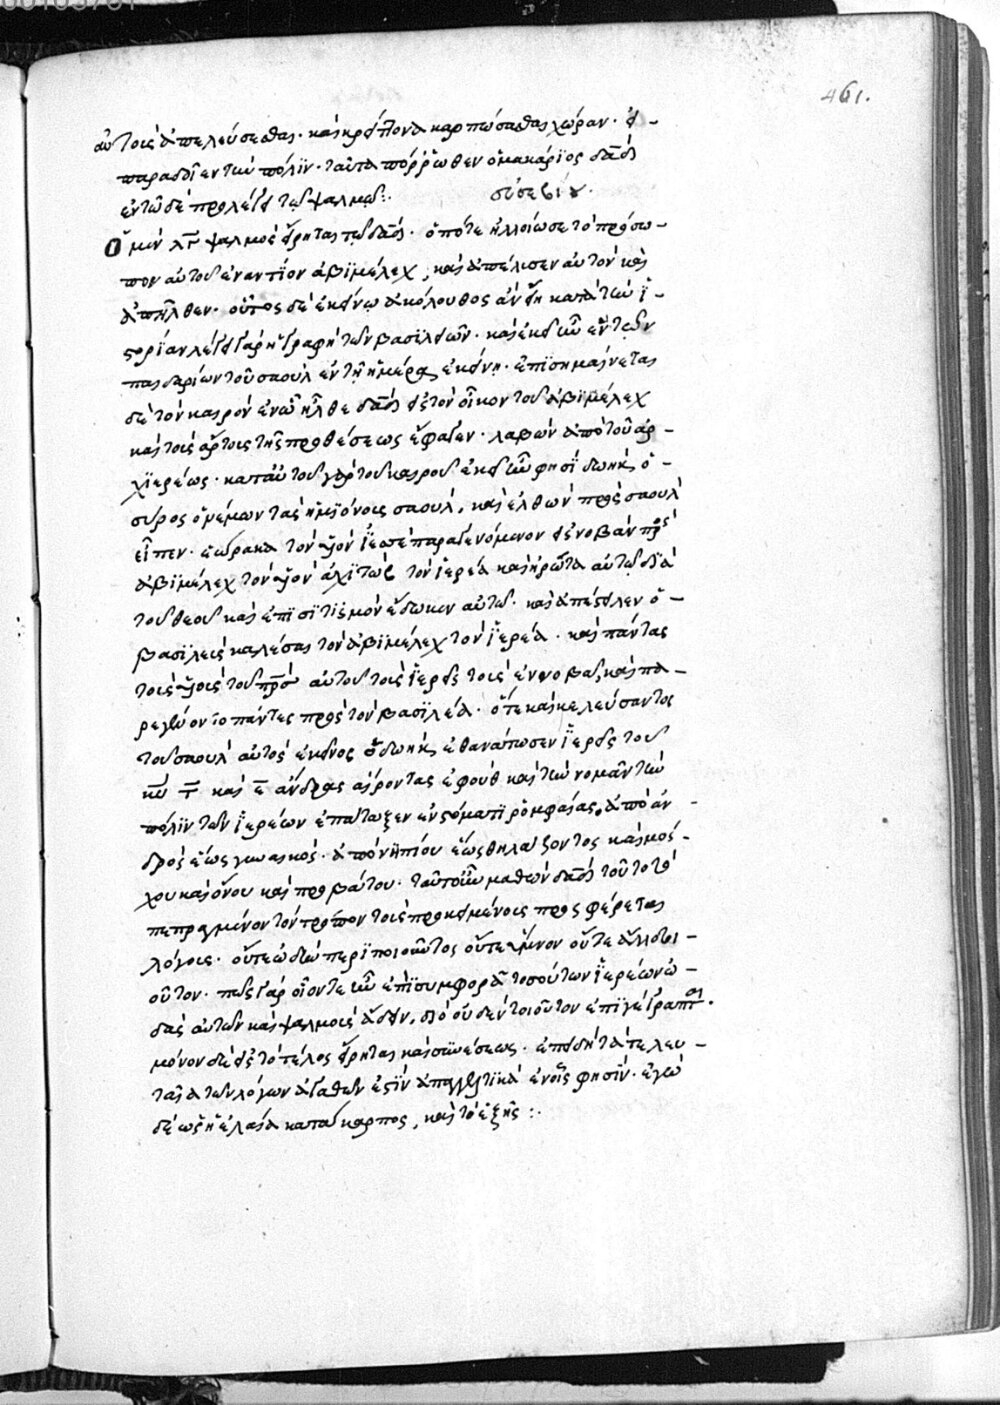 461.
αὐτοὺς ἀπελεύσεσθαι· καὶ κρείττονα καρπώσασθαι χώραν· εἰ –
παραδοῖεν τὴν πόλϊν· ταῦτα πόρρωθεν ὁ μακάρϊος δᾱδ
ἐν τῶδε προλέγει τῷ ψαλμῷ:. εὐσεβίου.
Ὁ μὲν λ̄γ̄ ψαλμὸς εἴρηται τῷ δᾱδ. ὁπότε ἠλλοίωσε τὸ πρόσω –
πον αὐτοῦ ἐναντΐον ἀβϊμέλεχ, καὶ ἀπέλυσεν αὐτὸν καὶ
ἀπῆλθεν· οὗτος δὲ ἐκείνω ἀκόλουθος ἂν εἴη κατὰ τὴν ἱ –
στορίαν λέγει γὰρ ἡ γραφὴ τῶν βασιλειῶν· καὶ ἐκεῖ ἦν εἷς τῶν
παιδαρίων τοῦ σαοὺλ ἐν τῇ ἡμέρᾳ ἐκείνῃ· ἐπϊσημαίνεται
δὲ τὸν καιρὸν ἐν ᾧ ἦλθε δᾱδ εἰς τὸν οἶκον τοῦ ἀβϊμέλεχ
καὶ τοὺς ἄρτους τῆς προθέσεως ἔφαγεν· λαβὼν ἀπὸ τοῦ ἀρ –
χϊερέως· κατ' αὐτοῦ γὰρ τοῦ καιροῦ ἐκεῖ ἦν φησὶ δωὴκ ὁ –
σύρος ὁ νέμων τὰς ἡμϊόνους σαοὺλ, καὶ ἐλθὼν πρὸς σαοὺλ
εἶπεν· ἑώρακα τὸν υἱὸν ἰεσσὲ παραγενόμενον εἰς νομβὰν πρὸς
ἀβϊμέλεχ τὸν υἱὸν ἀχϊτὼβ τὸν ἱερέα καὶ ἠρώτα αὐτῷ δϊὰ
τοῦ θεοῦ καὶ ἐπϊσϊτισμὸν ἔδωκεν αὐτῷ· καὶ ἀπέστειλεν ὁ –
βασϊλεὺς καλέσαι τὸν ἀβϊμέλεχ τὸν ἱερέα· καὶ πάντας
τοὺς υἱοὺς τοῦ π̄ρ̄ς αὐτοῦ τοὺς ἱερεῖς τοὺς ἐν νομβᾶ, καὶ πα –
ρεγένοντο πάντες πρὸς τὸν βασϊλέα· ὅτε καὶ κελεύσαντος
τοῦ σαοὺλ αὐτὸς ἐκεῖνος ὁ δωὴκ ἐθανάτωσεν ἱερεῖς τοῦ
κ̄υ τ̄ καὶ ε̄ ἄνδρας αἴροντας ἐφοὺθ καὶ τὴν νομβᾶν τὴν
πόλϊν τῶν ἱερέων ἐπάταξεν ἐν στόματϊ ῥομφαίας, ἀπὸ ἀν –
δρὸς ἕως γυναικός· ἀπὸ νηπίου ἕως θηλάζοντος καὶ μόσ –
χου καὶ ὄνου καὶ προβάτου· ταῦτ' οὖν μαθὼν δᾱδ τοῦτο τὸ
πεπραγμένον τὸν τρόπον τοῖς προκειμένοις προσφέρεται
λόγοις· οὔτε ὠδὴν περϊποιοῦντος οὔτε ὕμνον οὔτε ἄλλό τι –
οὗτον· πῶς γὰρ οἷόν τε ἦν ἐπὶ συμφορᾷ τοσούτων ἱερέων ὠ –
δὰς αὐτῶν καὶ ψαλμοὺς ᾄδειν, διὸ οὐδὲν τοιοῦτον ἐπϊγέγραπται.
μόνον δὲ εἰς τὸ τέλος εἴρηται καὶ συνέσεως· ἐπειδὴ τὰ τελευ –
ταῖα τῶν λόγων ἀγαθῶν ἐστὶν ἀπαγγελτϊκὰ ἐν οἷς φησϊν· ἐγὼ
δὲ ὡσεὶ ἐλαία κατάκαρπος, καὶ τὸ ἑξῆς:.